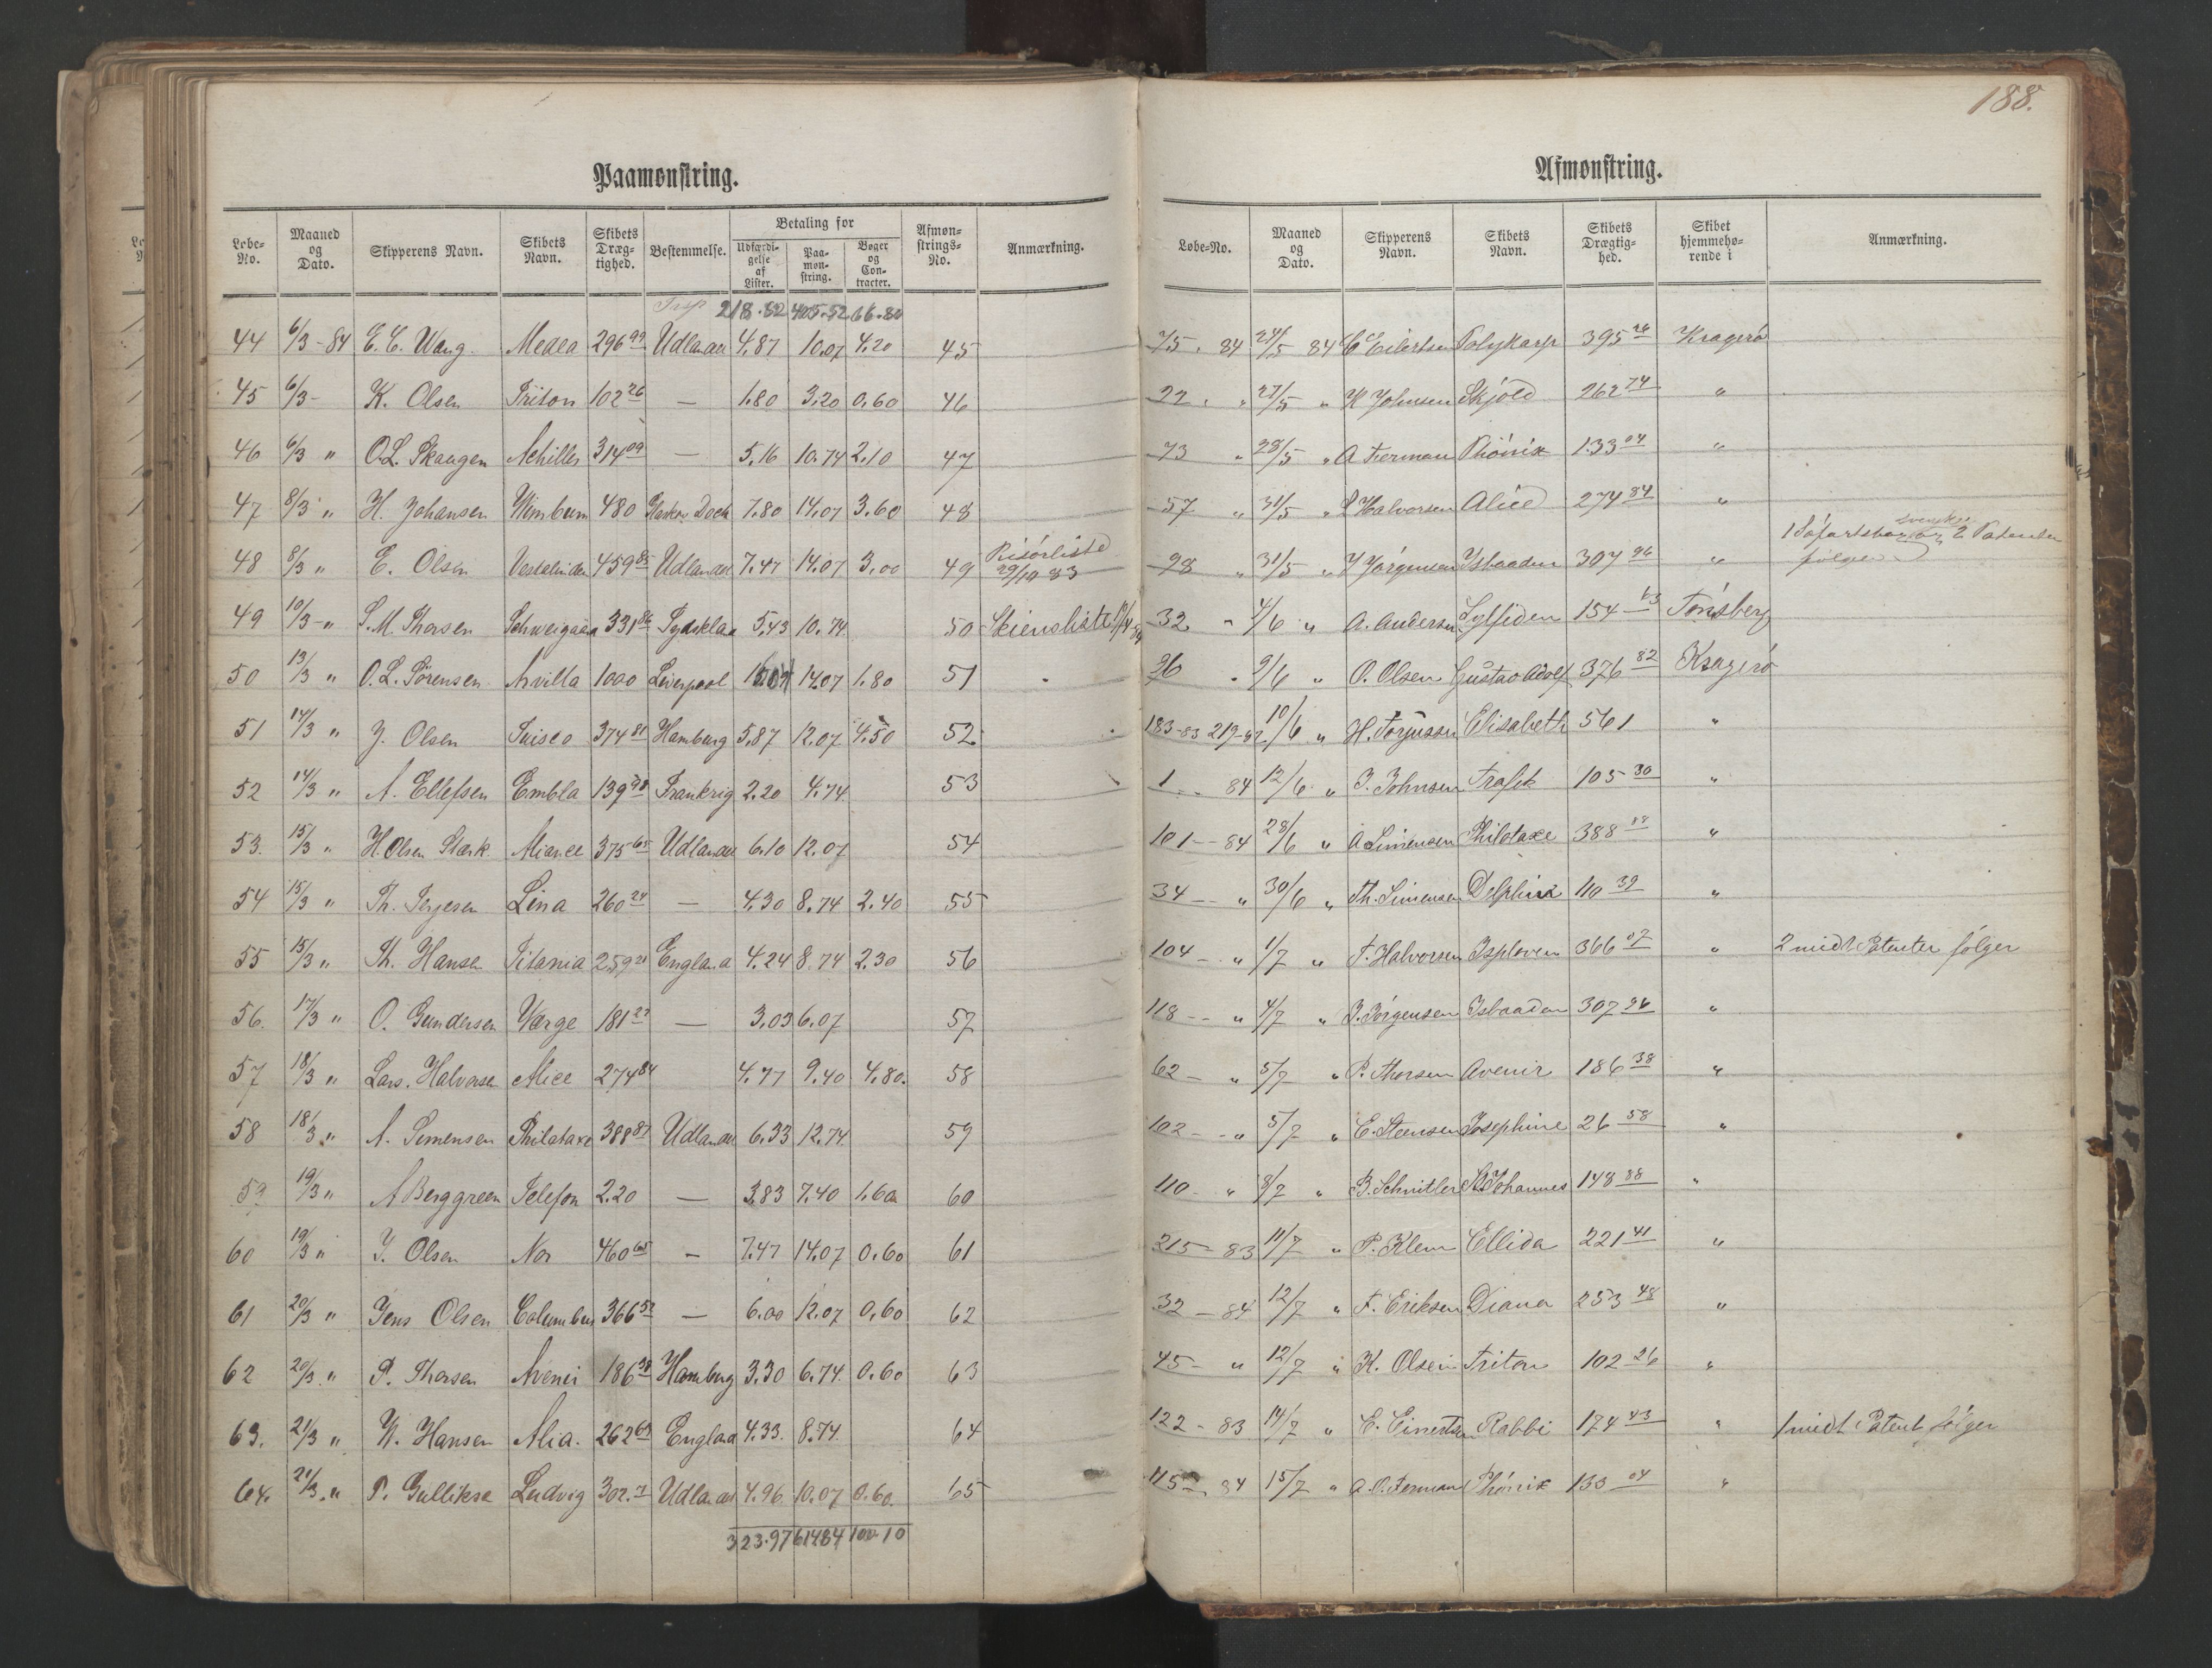 188.
Paamønstring.
Løbe-No. Maaned og Dato. Skipperens Navn. Skibets Navn. Skibets Dræg-tighed. Bestemmelse. Betaling for Udfærdi-gelse af Lister. Paa-møn-string. Bøger og Con-tracter. Afmøn-strings-No. Anmærkning.
218.82 405.52 66.80
44 6/3-84 E. C. Wang. Medea 296 99 Udlandet 4.87 10.07 4.20 45
45 6/3- K. Olsen Triton 102 26 — 1.80 3.20 0.60 46
46 6/3 " O.L. Skaugen Achilles 314 09 — 5,16 10.74 2.10 47
47 8/3 " H. Johansen 480 Dock 7.80 14.07 3.60 48
48 8/3 " E. Olsen Vestalinden 459 85 Udlandet 7.47 14.07 3,00 49 Risörliste 29/10 83
49 10/3-" S.M. Thorsen Schweigaard 331 86 Tydskland 5,43 10.74 50 Skiensliste
50 13/3 " O.L. Sørensen Arvilla 1000 Liverpool 14.07 1.80 51
51 14/3 " J. Olsen Tuisco 374 81 Hamburg 5,87 12.07 4.50 52
52 14/3 " A. Ellefsen Embla 139 Frankrig 2.20 4.74 53
53. 15/3 " H. Olsen Stærk Aliance 375 65 Udlandet 6.10 12.07 54
54 15/3 " Th. Terjesen Lina 260 24 — 4.30 8.74 2.40 55
55 15/3 " Th. Hansen Titania 259 England 4.24 8.74 2.30 56
56. 17/3 " O. Gundersen Værge 181 27 — 3.03 6.07 57
57 18/3 " Lars. Halvorsen Alice 274 84 4.77 9.40 4.80. 58
58 18/3 " A. Simensen Philotaxe 388 87 Udlandet 6.33 12.74 59
59 19/3 " A Berggreen Telefon 2.20 — 3.83 7.40 1.60 60
60 19/3 " J. Olsen Nor 460 65 – 7.47 14.07 0.60 61
61 20/3 " Jens Olsen Columbus 366 52 — 6.00 12.07 0,60 62
62 20/3 " P. Thorsen Avenir 186 38 Hamburg 3.30 6.74 0.60 63
63. 21/3 " N. Hansen Alia. 262 63 England 4.33. 8.74 64
64. 21/3 " P. Gulliksen Ludvig 302. Udlandet 4.96 10.07 0.60. 65
323.97 614.84 100 10
Afmønstring.
Løbe-No. Maaned og Dato. Skipperens Navn. Skibets Navn. Skibets Drægtig-hed. Skibet hjemmehø-rende i Anmærkning.
75. 84 24/5 84 C Eilertsen Polykarp 395 26 Kragerö
22. " 27/5 " K Johnsen Skjold 262 74 "
73 " 28/5 " A Ferman Phönix 133 04 "
57 " 31/5 " L Halvorsen Alice 274 84 "
98 " 31/5 " J Jörgensen Isbaaden 307 96 " 1 Söfartsbog og svenske 2 Patenter følger
32 " 4/6 " A. Andersen Sylfiden 154 63 Tönsberg
26 " 9/6 " O. Olsen Gustav Adolf 376 82 Kragerö
183-83 219-82 10/6 " H. Torjussen Elisabeth 561 "
1 - 84 12/6 " J. Johnsen Trafik 105 30 "
101 - 84 28/6 " A Simensen Philotaxe 388 "
34 - " 30/6 " Th. Simensen Delphin 110 39 "
104 - " 1/7 " T. Halvorsen Isploven 366 07 " 2 midl Patenter følger
118 - " 4/7 " J. Jörgensen Isbaaden 307 96 "
62 - " 5/7 " P. Thorsen Avenir 186 38 "
102 - " 5/7 " E. Steensen Josephine 26 58 "
110 " 8/7 " B. Schnitler St Johannes 148 88 "
215 - 83 11/7 " P. Klem Ellida 221 41 "
32 - 84 12/7 " F. Eriksen Diana 253 48 "
45 - " 12/7 " K. Olsen Triton 102 26 "
122 - 83 14/7 " E. Einertsen Rabbi 174 43 " 1 midl Patent følger
115 - 84 15/7 " A. O. Ferman Phönix 133 04 "